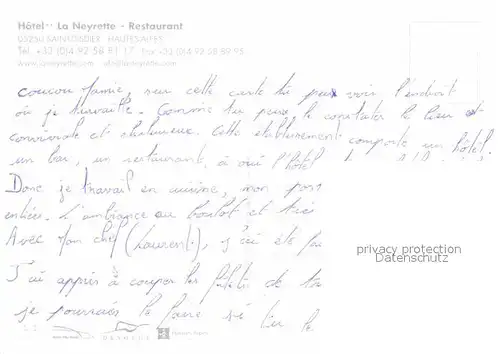 Hôtel ** La Neyrette - Restaurant
05250 SAINT-DISDIER - HAUTES-ALPES
Tél. +33 (0)4 92 58 81 17 Fax +33 (0)4 92 58 89 95
www.la-neyrette.com info@la-neyrette.com
coucou mamie, sur cette carte tu peux voir l'endroit
où je travaille. Comme tu peux le constater le lieu est
convivial et chaleureux. Cette établissement comporte un hôtel,
un bar, un restaurant, à oui l'hôtel
Donc je travail en cuisine, mon pos
entrées. L'ambiance au boulot et très
Avec mon chef (Laurent), j'ai été
J'ai appris à couper les de
je pourrais le faire si tu le
privacy protection
Datenschutz